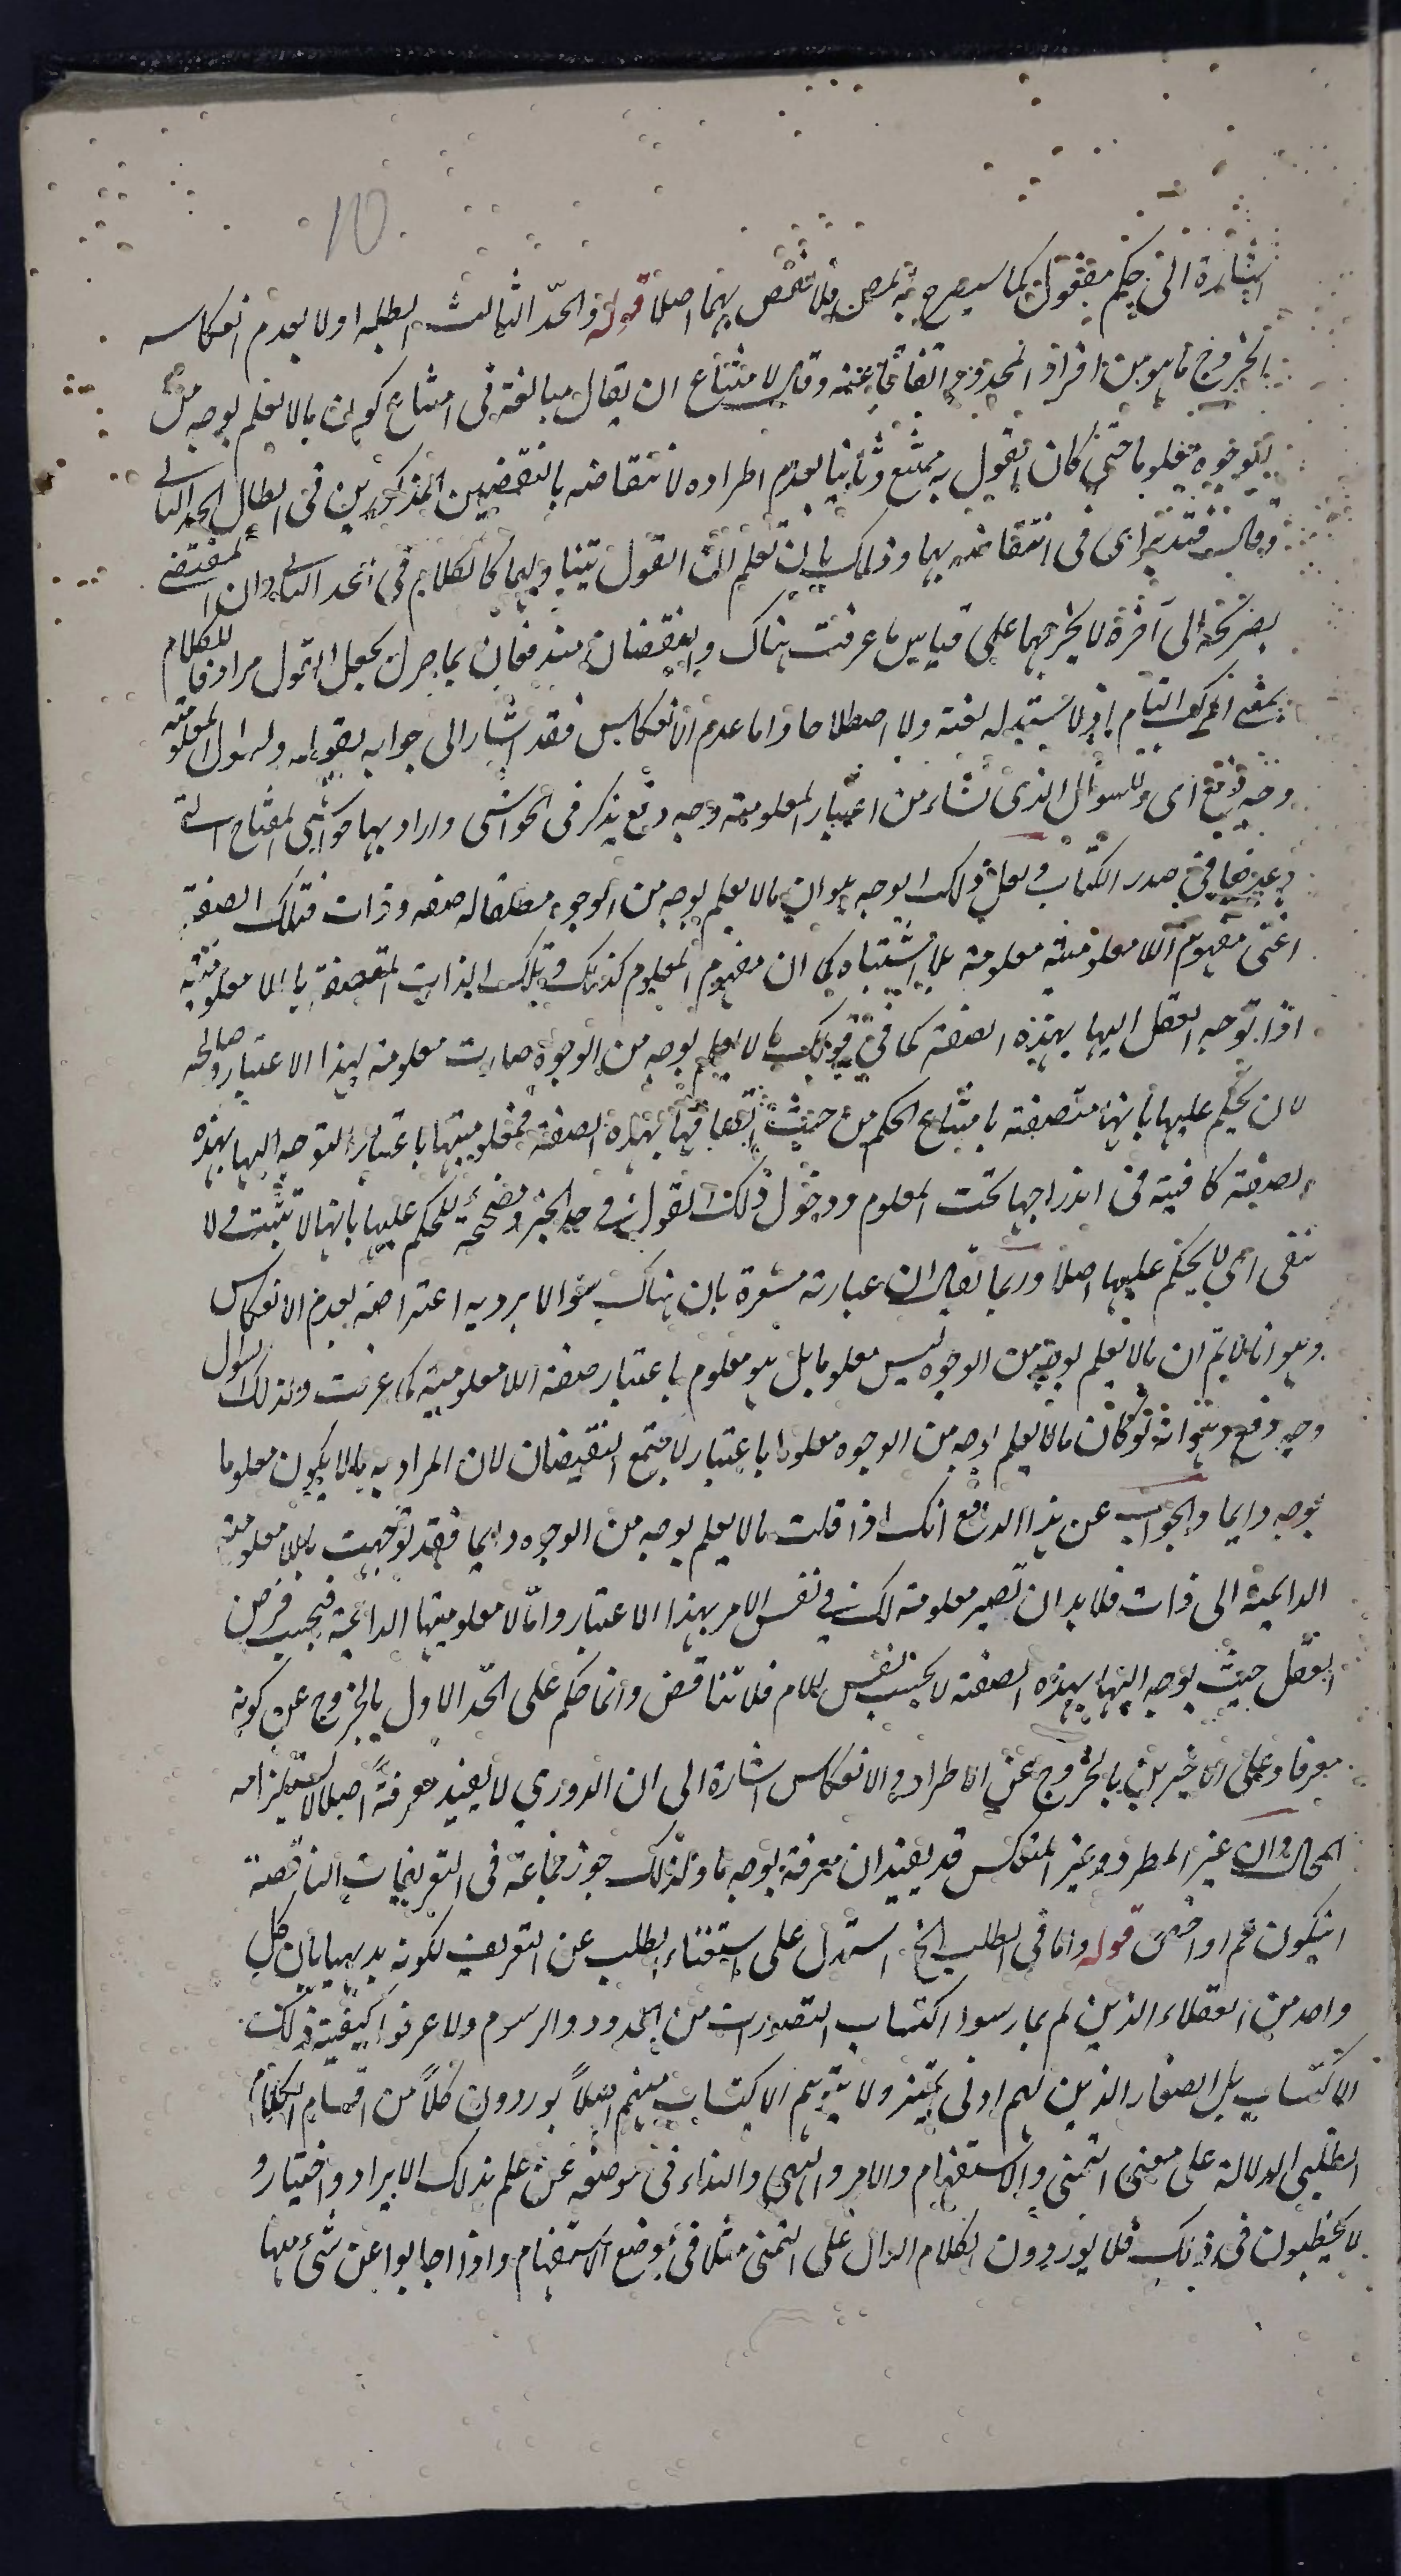 10
اشارة الى حكم مفقود كما سيصرح به فلا نقض بهما اصلا قوله والحد الثالث ابطله اولا بعدم انعكاسه
بالخروج ما هو من افراد المحدود اتفاقا عنه وقال لامتناع ان يقال مبالغة فى امتناع كون ما لا يعلم بوجه من
الوجوه معلوما حتى كان القول به ممتنع وثانيا بعدم اطراده لانتقاضه بالنقضين المذكورين فى ابطال الحد الثانى
وقال فتدبر اى فى انتقاضه بهما وذلك بان تعلم ان القول يتناولهما كالكلام فى الحد الثانى وان المقتضى
بصريحه الى آخره لا يخرجهما على قياس ما عرفت هناك والنقضان مندفعان بما مر من جعل القول مرادفا للكلام
بمعنى المركب التام اذ لا يستبد له لغة ولا اصطلاحا واما عدم الانعكاس فقد اشار الى جوابه بقوله ولسؤال المعلومية
وجه دفع اى وللسؤال الذى نشاء من اعتبار المعلومية وجه دفع يذكر فى الحواشى واراد بها حواشى المفتاح التى
وعدها فى صدر الكتاب ولعل ذلك الوجه هو ان ما لا يعلم بوجه من الوجوه مطلقا له صفه وذات فتلك الصفة
اعنى مفهوم اللا معلومية معلومة بلا اشتباه كما ان مفهوم المعلوم كذلك وتلك الذات المتصفة باللا معلومية
اذا توجه العقل اليها بهذه الصفة كما فى قولك ما لا يعلم بوجه من الوجوه صارت معلومة لهذا الاعتبار وصالحة
لان يحكم عليها بانها متصفة بامتناع الحكم من حيث اتصافها بهذه الصفة فمعلوميتها باعتبار التوجه اليها بهذه
الصفة كافية فى اندراجها تحت المعلوم ودخول ذلك القول فى حد الخبر ومصححة للحكم عليها بانها لا تثبت ولا
تنفى اى لا يحكم عليها اصلا وربما يقال ان عبارته مشعرة بان هناك سؤالا يرد به اعتراضه بعدم الانعكاس
وهو انا لا نم ان ما لا يعلم بوجه من الوجوه ليس معلوما بل هو معلوم باعتبار صفة اللا معلومية كما عرفت ولذلك السؤال
وجه دفع وهو انه لو كان ما لا يعلم بوجه من الوجوه معلوما باعتبار لاجتمع النقيضان لان المراد به ما لا يكون معلوما
بوجه دايما والجواب عن هذا الدفع انك اذا قلت ما لا يعلم بوجه من الوجوه دايما فقد توجهت باللا معلومية
الدايمية الى ذات فلا بد ان تصير معلومة لك فى نفس الامر بهذا الاعتبار واما لا معلوميتها الدايمة فبحسب فرض
العقل حيث توجه اليها بهذه الصفة لا بحسب نفس الامر فلا تناقض وانما حكم على الحد الاول بالخروج عن كونه
معرفا وعلى الاخيرين بالخروج عن الاطراد والانعكاس اشارة الى ان الدوري لا يفيد معرفةً اصلا لاستلزامه
المحال وان غير المطرد وغير المنعكس قد يفيدان معرفة بوجه ما ولذلك جوز جماعة فى التعريفات الناقصة
ان يكون اعم او اخص قوله واما فى الطلب الخ استدل على استغناء الطلب عن التعريف لكونه بديهيا بان كل
واحد من العقلاء الذين لم يمارسوا اكتساب التصورات من الحدود والرسوم ولا عرفوا كيفية ذلك
الاكتساب بل الصغار الذين لهم ادنى تميز ولا يتوهم الاكتساب منهم اصلاً يوردون كلاً من اقسام الكلام
الطلبى الدلالة على معنى التمنى والاستفهام والامر والنهى والنداء فى موضعه عن علم بذلك الايراد واختيار و
لا يخطيون فى ذلك فلا يوردون الكلام الدال على التمنى مثلا فى موضع الاستفهام واذا اجابوا عن شئ منها